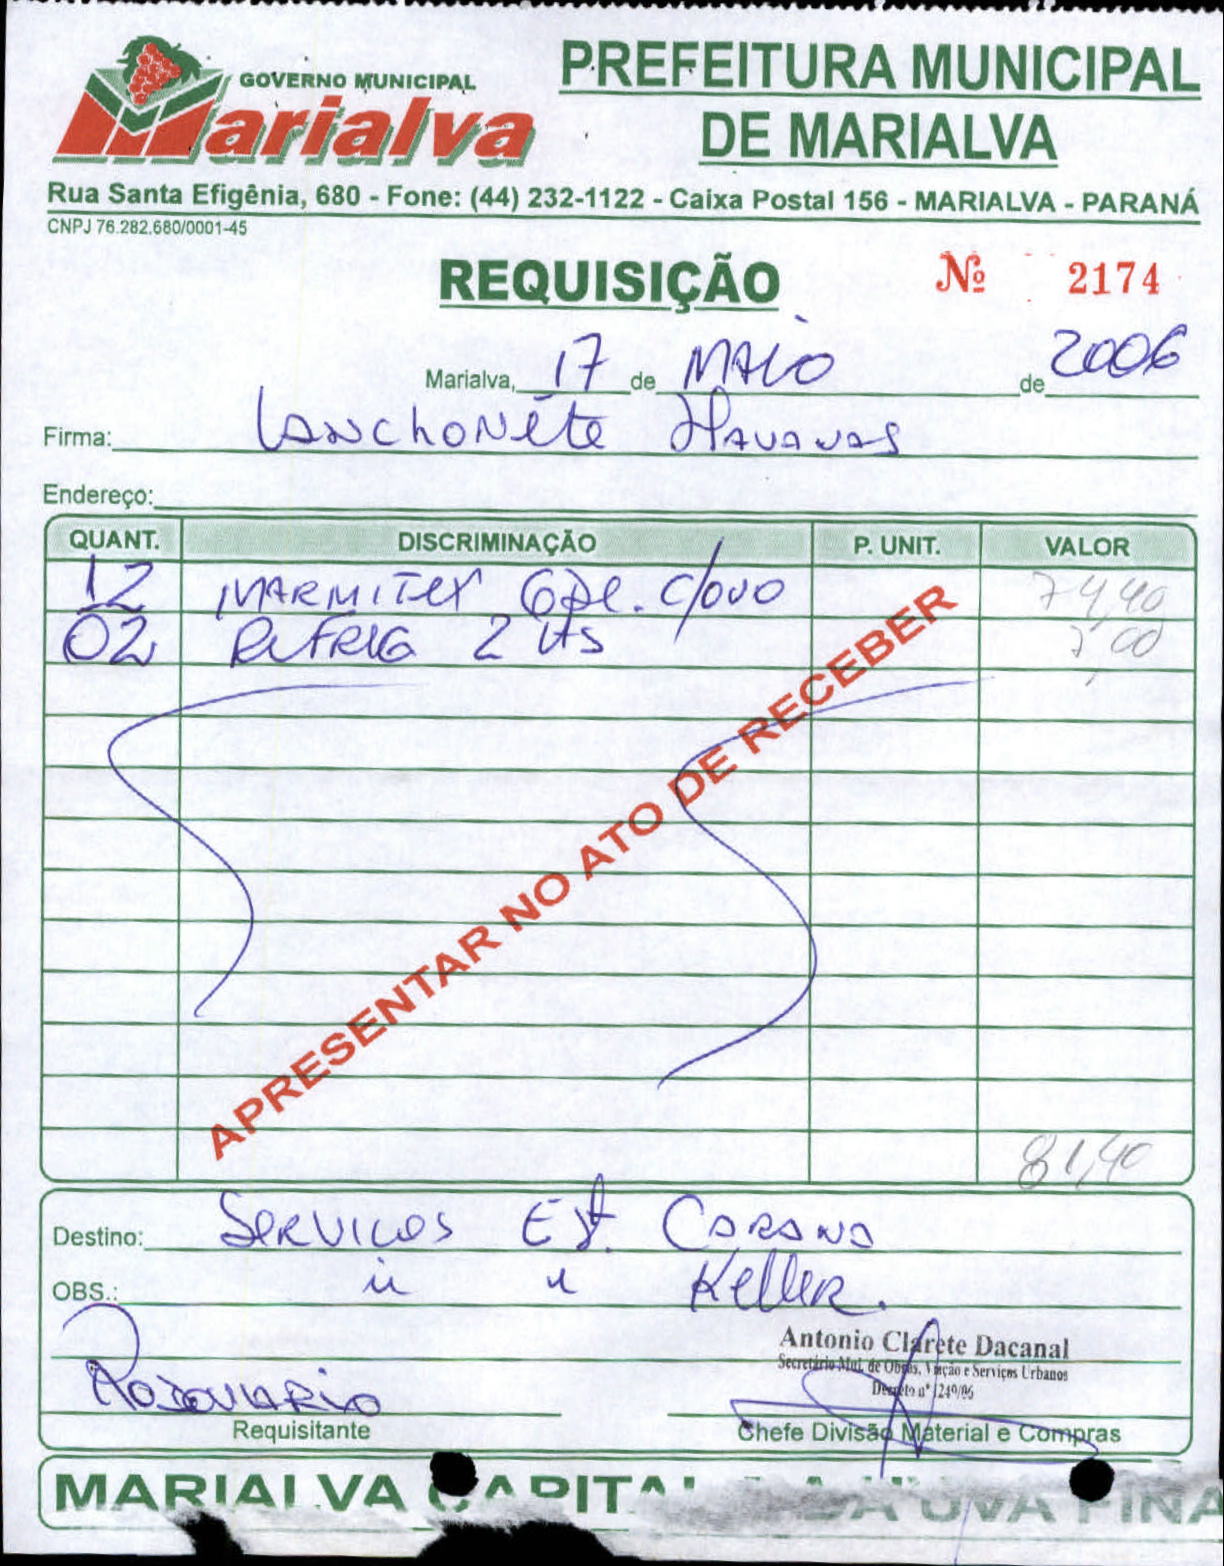 GOVERNO MUNICIPAL
Marialva
PREFEITURA MUNICIPAL
DE MARIALVA
Rua Santa Efigênia, 680 - Fone: (44) 232-1122 - Caixa Postal 156 - MARIALVA - PARANÁ
CNPJ 76.282.680/0001-45
REQUISIÇÃO Nº 2174
Marialva, 17 de MAIO de 2006
Firma: LANCHONETE HAVANAS
Endereço:
QUANT. DISCRIMINAÇÃO P. UNIT. VALOR
12 MARMITEX GDE. C/OVO 74,40
02 REFRIG 2 LTS 7,00
APRESENTAR NO ATO DE RECEBER
81,40
Destino: SERVICOS Est. CARANA
OBS.: " " Keller.
Antonio Clarete Dacanal
Secretário Mul. de Obras, Viação e Serviços Urbanos
Decreto nº 1249/06
Requisitante
Chefe Divisão Material e Compras
MARIALVA CAPITAL DA UVA FINA